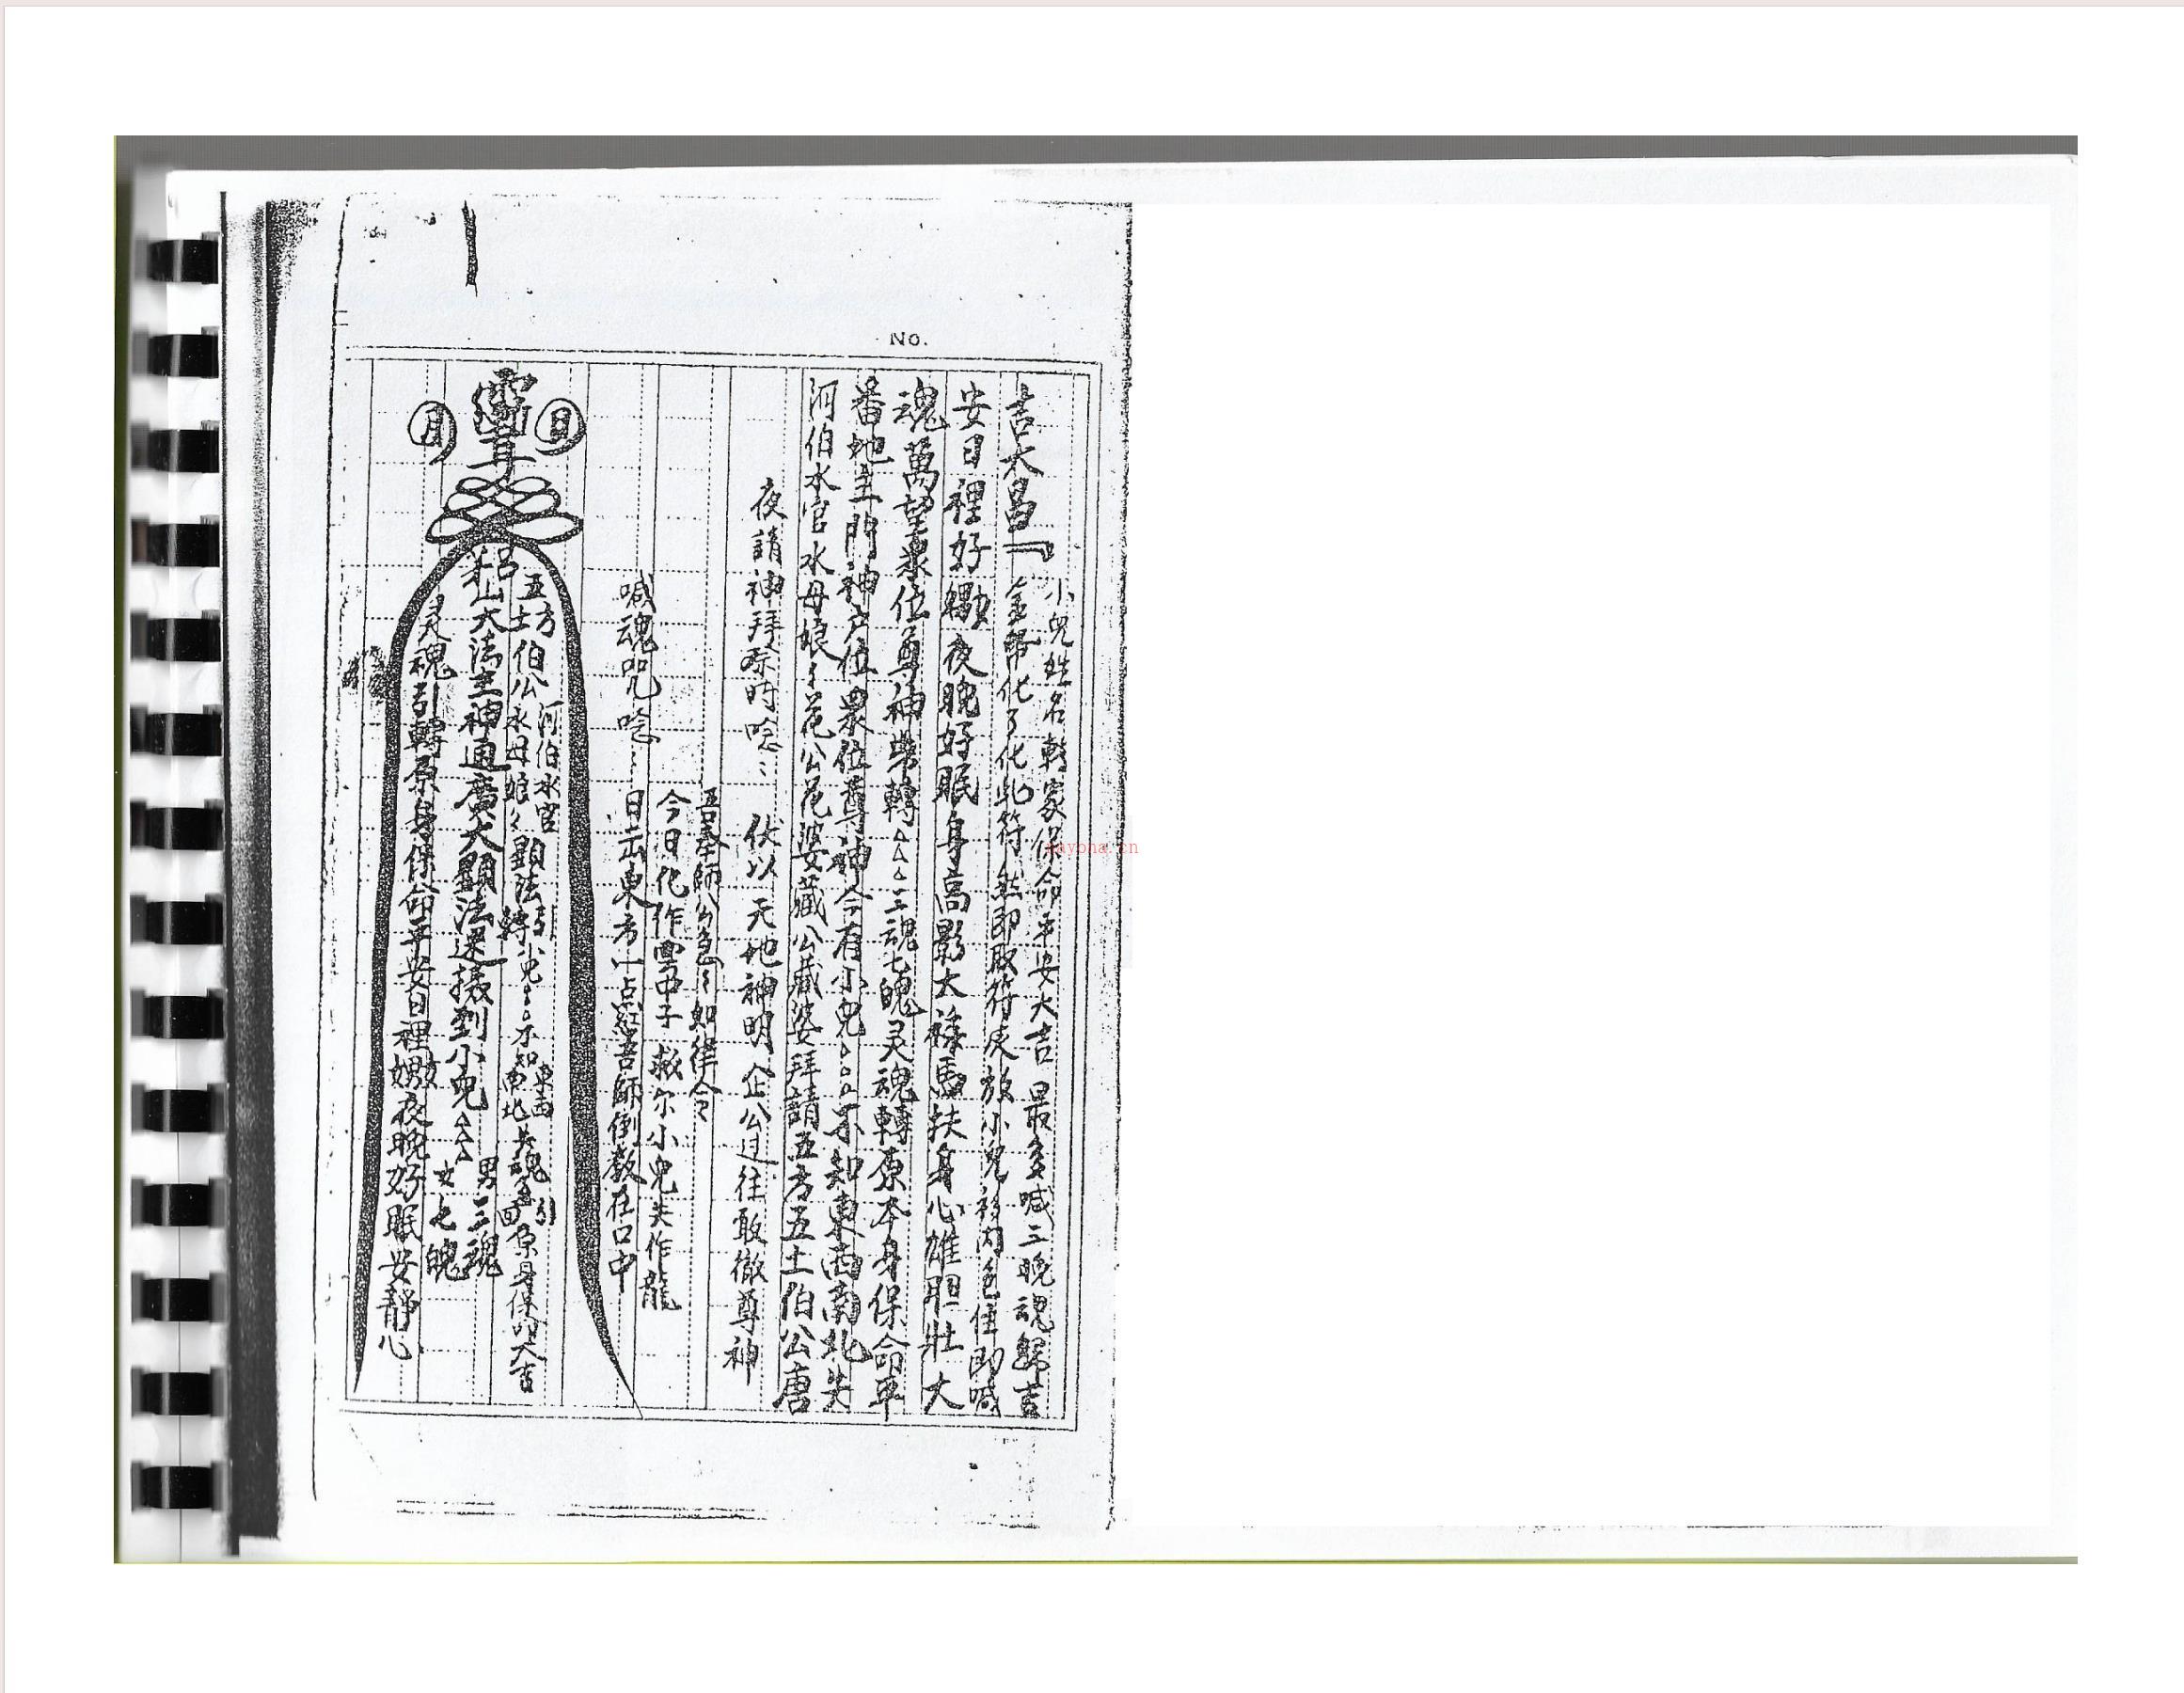 靈
日
月
灵魂引轉原身保命平安日裡嬲夜晚好眠安靜心
山大法主神通廣大顯法還接到小兒△△△男三魂
女七魄
五方
五土伯公水母娘々
河伯水官
顯法轉小兒○○○不知東西南北失魂引回原身保命大吉
喊魂咒唸:
日出東方一点紅吾師倒教在口中
今日化作雪中子 救尔小兒失作龍
吾奉師公急々如律令
夜請神拜祭時唸: 伏以 天地神明 企公过往敢徹尊神
河伯水官水母娘々花公花婆藏公藏婆拜請五方五土伯公唐
番地主門神户位眾位尊神今有小兒○○○不知東西南北失
魂萬望眾位尊神帶轉△△△三魂七魄灵魂轉原本身保命平
安日裡好嬲夜晚好眠身高影大祿馬扶身心雄胆壯大
吉大昌『
金帛化了化此符 然即取符灰放小兒衫內包住即喊
小兒姓名轉家保命平安大吉 最多喊三晚魂歸吉
No.